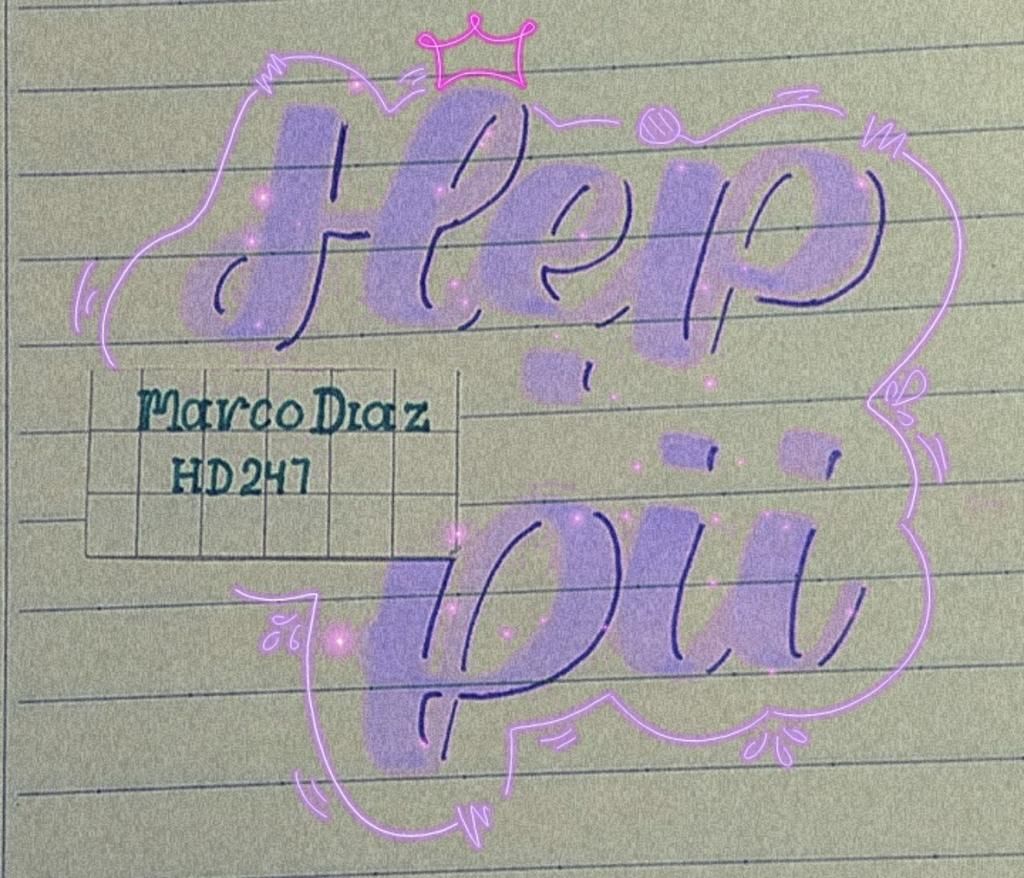 Hẹp
Marco Diaz
HD247
pii